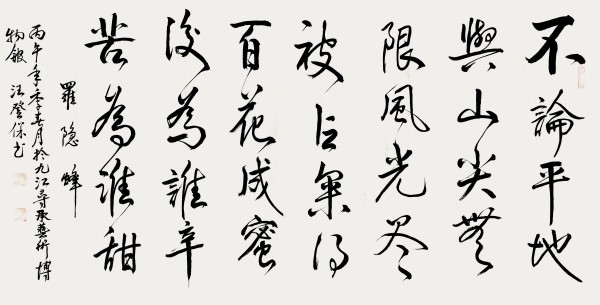 不論平地
與山尖無
限風光尽
被占采得
百花成蜜
後為誰辛
苦為誰甜
羅隐蜂
丙午年季春月於九江藝術博
物館 汪登保书